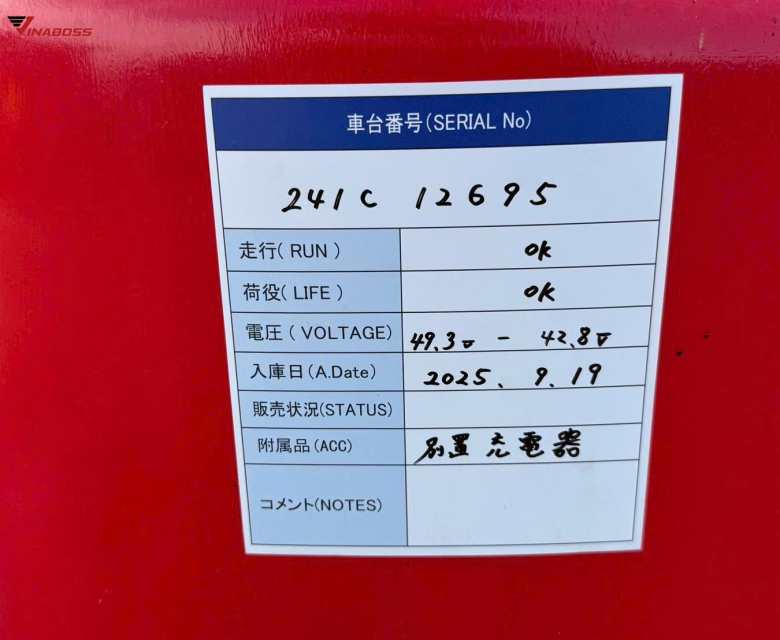 VINABOSS
車台番号(SERIAL No)
241C 12695
走行( RUN ) OK
荷役( LIFE ) OK
電圧( VOLTAGE) 49.3V - 42.8V
入庫日(A.Date) 2025. 9. 19
販売状況(STATUS)
附属品(ACC) 別置充電器
コメント(NOTES)